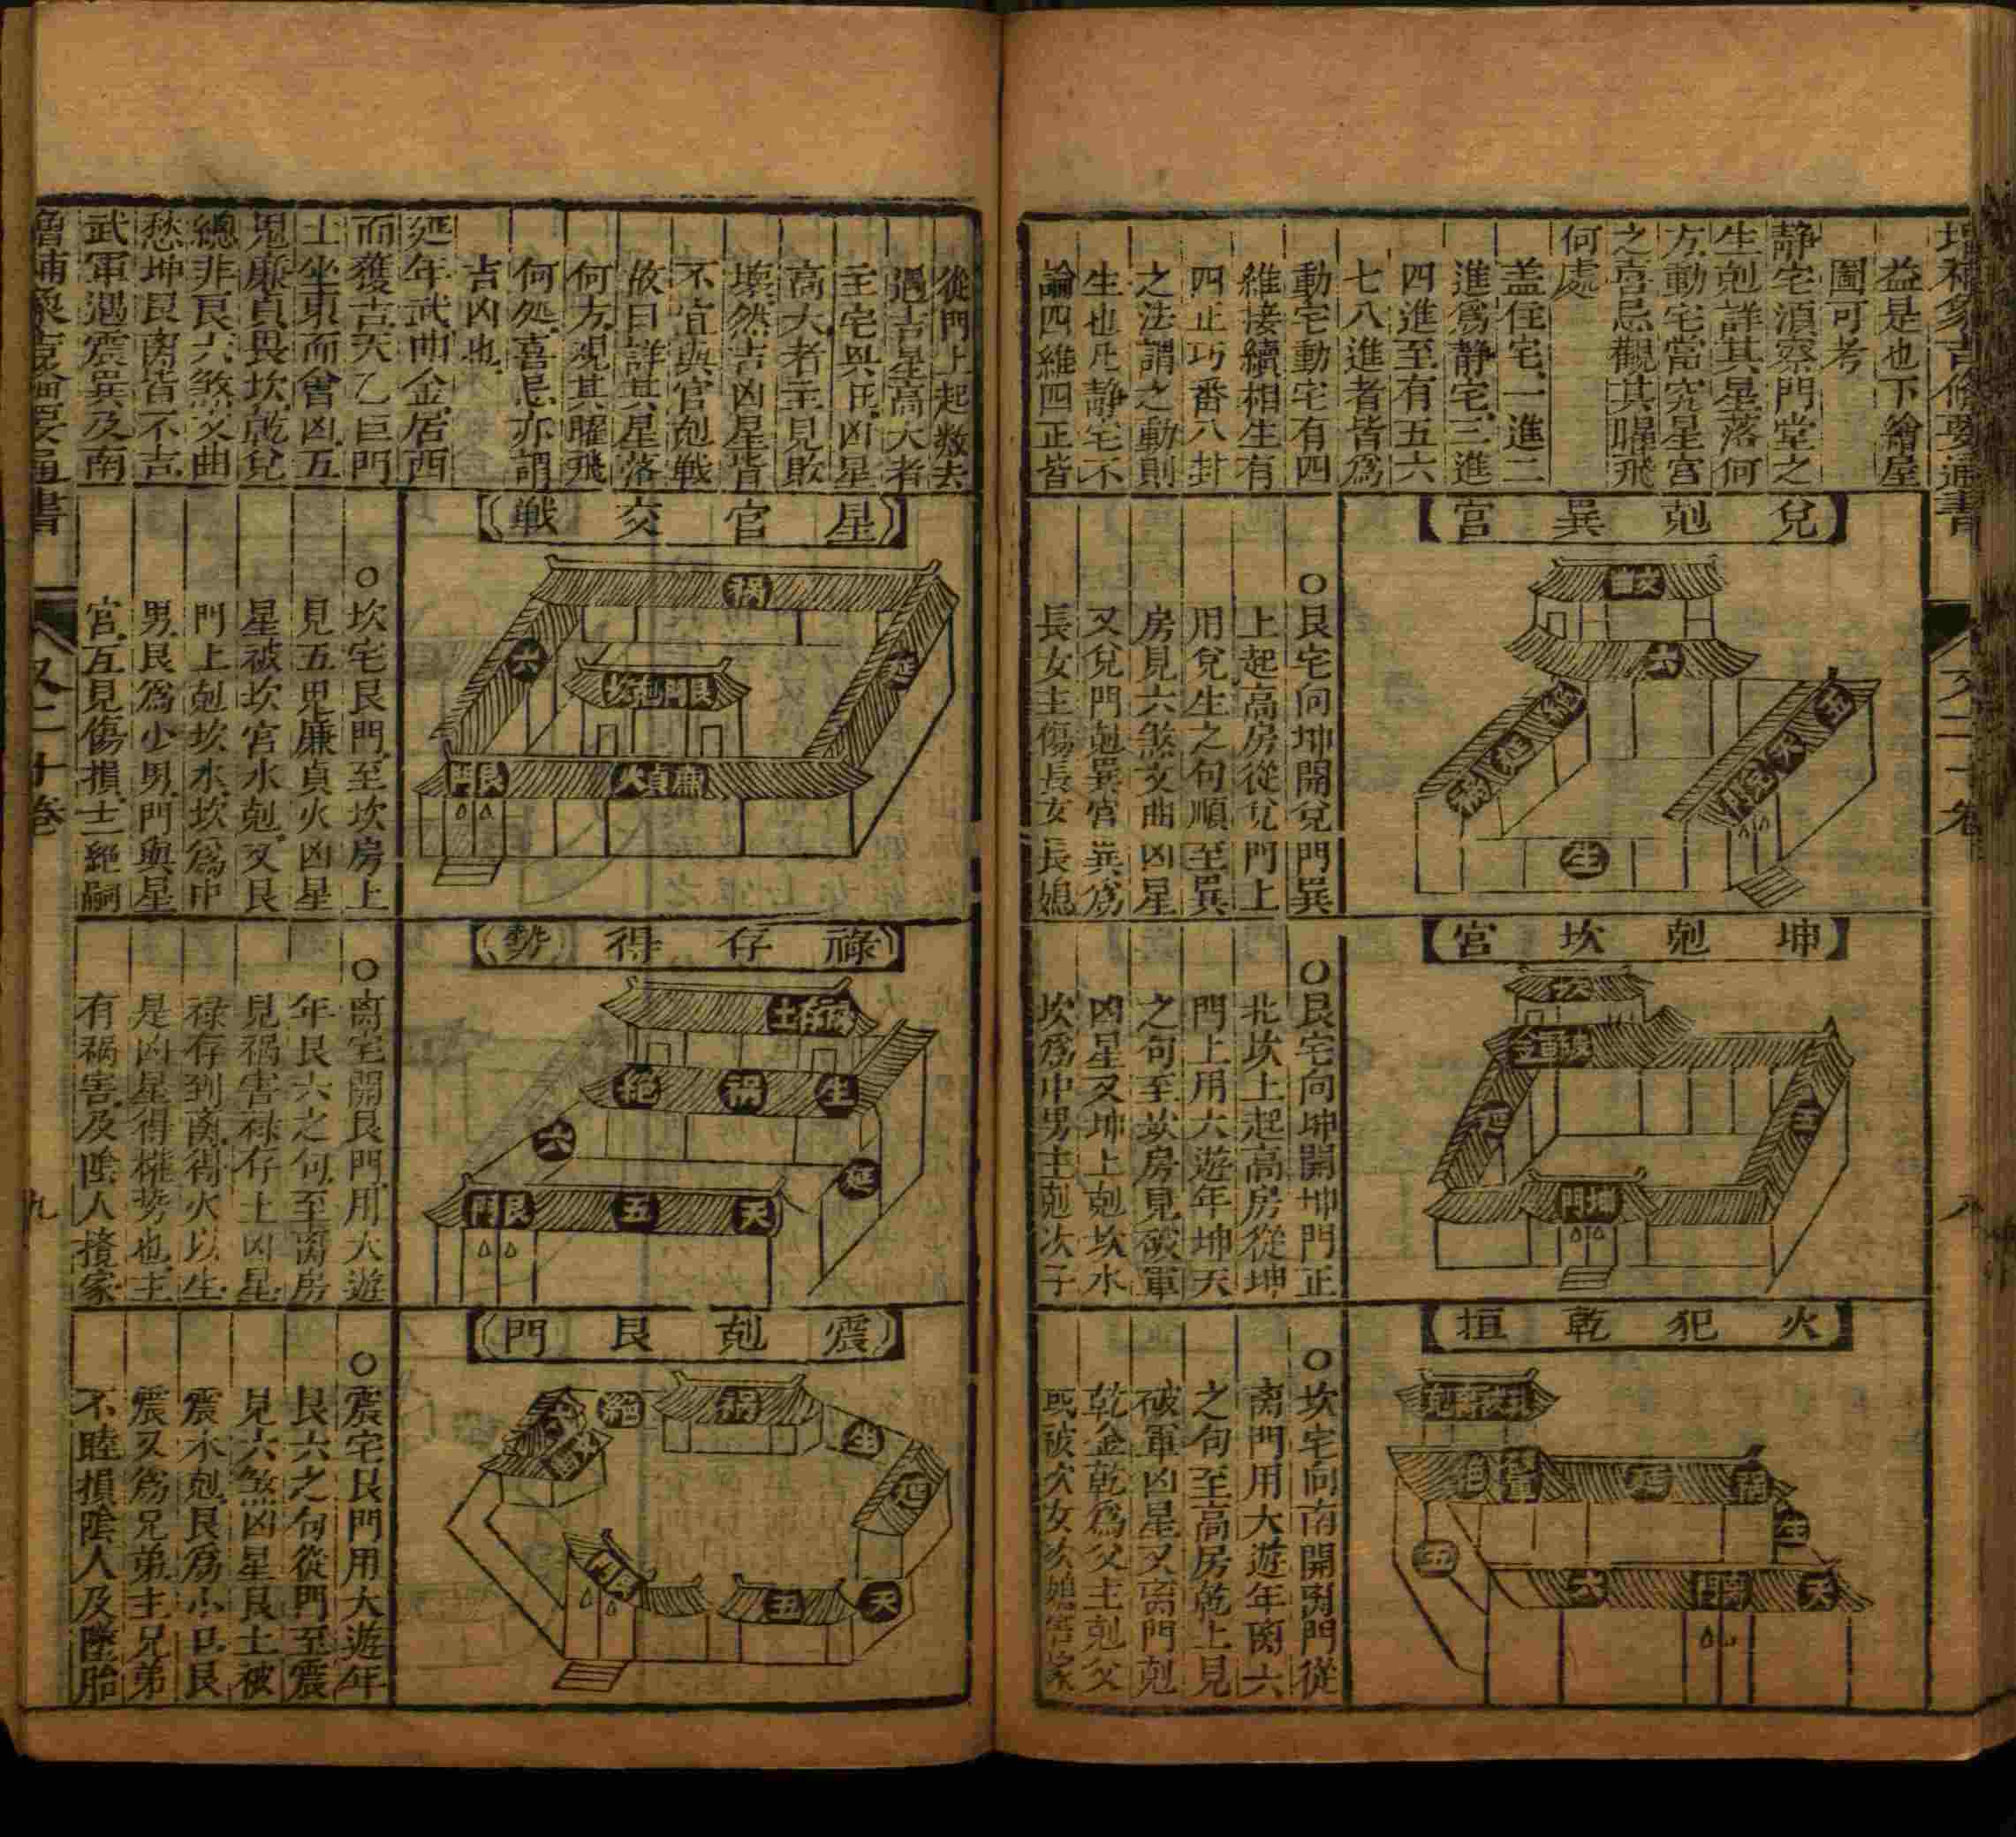 增補象吉俻要通書
益是也下繪屋
圖可考
静宅湏察門堂之
生剋詳其星落何
方動宅當究星宫
之喜忌觀其曜飛
何處
盖住宅一進二
進為静宅三進
四進至有五六
七八進者皆爲
動宅動宅有四
維接續相生有
四正巧番八卦
之法謂之動則
生也凡静宅不
論四維四正皆
兌剋巽宫
文曲
六
絕
延
禍
五
天
生
○艮宅向坤開兌門巽
上起高房從兌門上
用兌生之句順至巽
房見六煞文曲凶星
又兌門剋巽宫巽爲
長女主傷長女長媳
坤剋坎宫
坤門
五
○艮宅向坤開坤門正
北坎上起高房從坤
門上用大遊年坤天
之句至坎房見破軍
凶星又坤上剋坎水
坎爲中男主剋次子
火犯乾垣
絕
延
禍
生
五
六
離門
天
○坎宅向南開离門從
离門用大遊年离六
之句至高房乾上見
破軍凶星又离門剋
乾金乾爲父主剋父
又二十卷
八
從門上起数去
遇吉星高大者
主宅興旺凶星
高大者主見敗
壞然吉凶星皆
不宜與宫剋戦
故曰詳其星落
何方观其曜飛
何処喜忌亦謂
吉凶也
延年武曲金居西
而獲吉天乙巨門
土坐東而會凶五
鬼廉貞畏坎乾兌
總非艮六煞文曲
愁坤艮离皆不吉
武軍遇震巽及南
星宫交戦
禍
六
延
艮門剋坎
艮門
廉貞火
○坎宅艮門至坎房上
見五鬼廉貞火凶星
星被坎宫水剋又艮
門上剋坎水坎爲中
男艮爲小男門與星
宫互見傷損主絕嗣
祿存得勢
祿存土
絕
禍
生
六
延
艮門
五
天
○离宅開艮門用大遊
年艮六之句至离房
見禍害禄存土凶星
禄存到离得火以生
是凶星得權势也主
有禍害及陰人攪家
震剋艮門
六
文曲
絕
禍
生
延
艮門
五
天
○震宅艮門用大遊年
艮六之句從門至震
見六煞凶星艮土被
震木剋艮爲小口艮
震又爲兄弟主兄弟
不睦損陰人及墮胎
增補象吉俻要通書
又二十卷
九